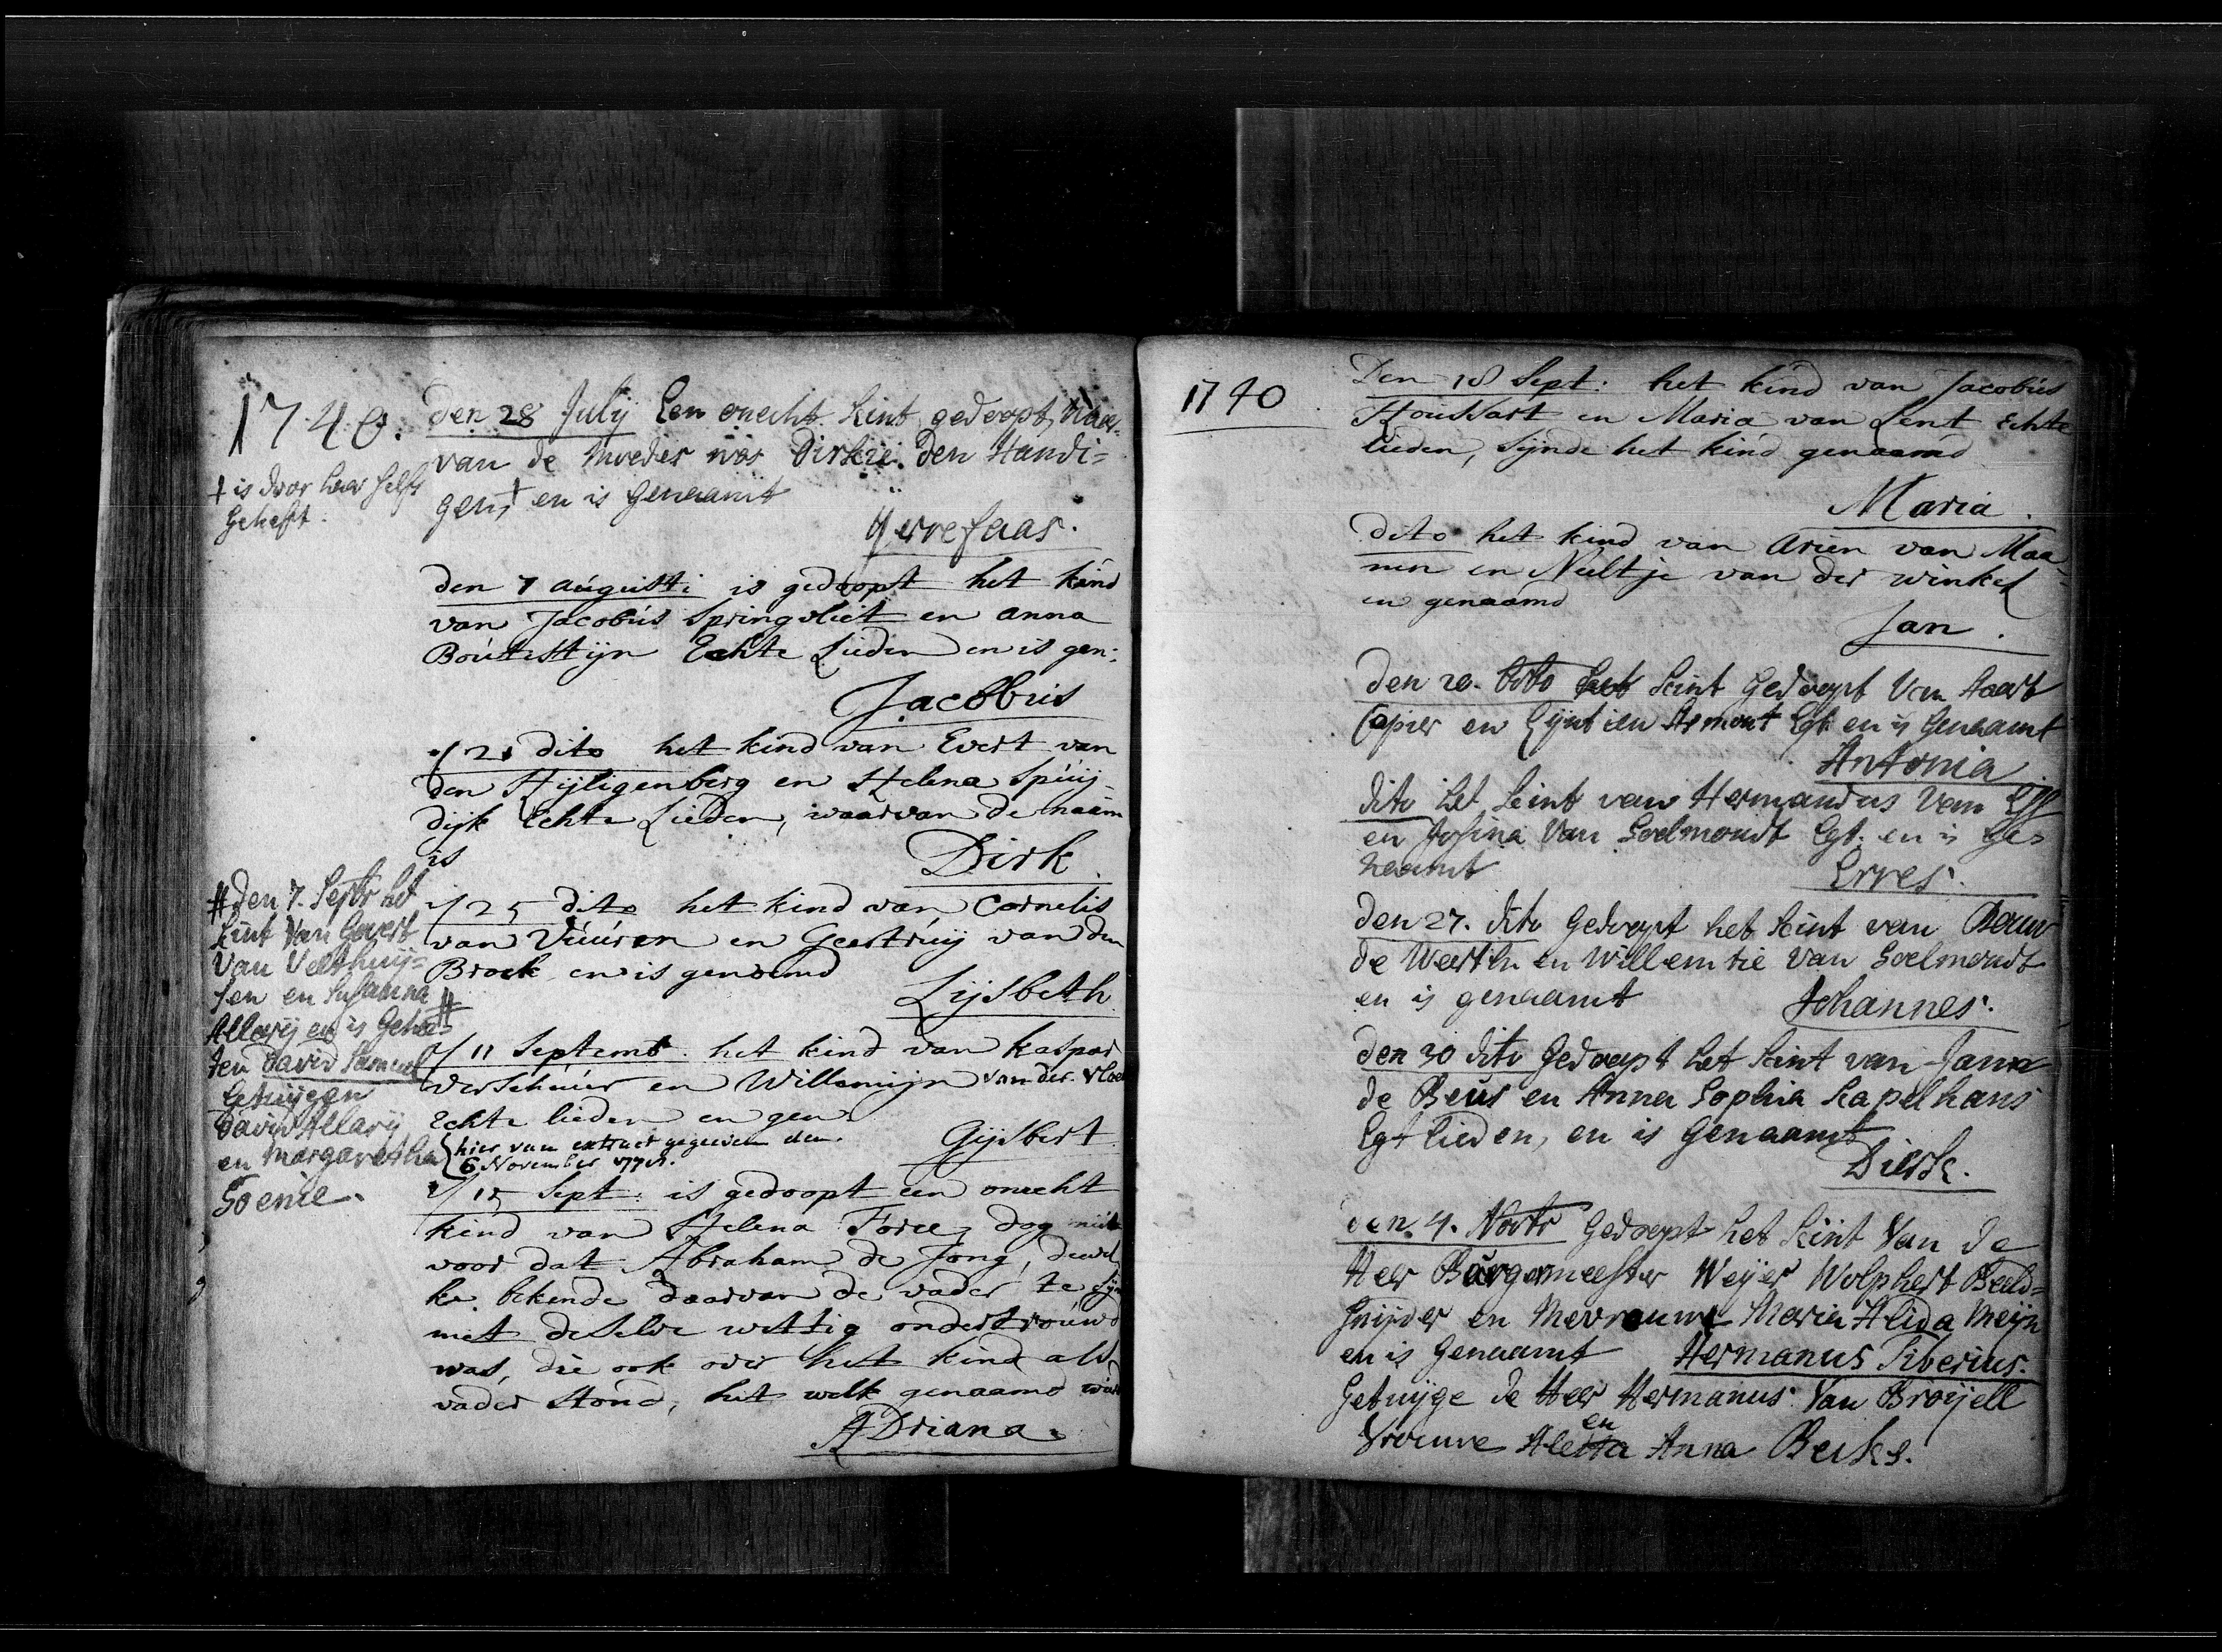 1740.
den 28 July Een onecht kint gedoopt, waer-
van de Moeder was Dirkie den Handi=
gen, † en is Genaamt
Yerrefaas.
† is door haer selfs
Geheft.
den 7 augusti is gedoopt het kind
van Jacobus Springvliet en anna
Boutestijn Echte Lieden en is gen:
Jacobus
21 dito het kind van Evert van
den Hijligenberg en Helena Spuij-
dijk Echte Lieden, waarvan de naam
is
Dirk.
25 dito het kind van Cornelis
van Vuuren en Geertruij van den
Broek en is genoemd
Lijsbeth
#
# den 7. Septr het
kint Van Govert
Van Velthuij=
sen en Susanna
Allarij en is Gehe=
ten David Samuel
Getuijgen
David Allarij
en Margaretha
Goenie.
11 Septemb. het kind van kaspar
Verschuur en Willemijn van der Vloe
Echte lieden en gen
Gijsbert
hier van extract gegeven den
6 November 177
18 Sept: is gedoopt een onecht
kind van Helena Foree, dog niet
voor dat Abraham de Jong, dewel
ke bekende daarvan de vader te sijn
met deselve wettig ondertrouwd
was, die ook over het kind als
vader stond, het welk genaamd wierd
ADriana.
1740
Den 18 Sept: het kind van Jacobus
Houwart en Maria van Lent Echte
lieden, sijnde het kind genaamd
Maria.
dito het kind van Arien van Maa-
nen en Neeltje van der winkel
en genaamd
Jan.
den 20. dito het kint Gedoopt Van Aart
Copier en Lijntien Armont Egt. en is Genaamt
Antonia
dito het kint van Hermandus Van Eff
en Josina Van Soelmondt Egt. en is Ge=
naamt
Erres.
den 27. dito Gedoopt het kint van Bauw
de Weerth en Willemtie Van Soelmondt
en is genaamt
Johannes.
den 30 dito Gedoopt het kint van Jan
de Beus en Anna Sophia Kapelhans
Egt lieden, en is Genaamt
Dierk.
den 4. Novbr Gedoopt het kint Van de
Heer Burgermeester Weijer Wolphert Beeld=
snijder en Mevrouwe Maria Alida Meijn
en is Genaamt Hermanus Tiberius.
Getuijge de Heer Hermanus Van Broijell
en
Vrouwe Aletta Anna Beuks.